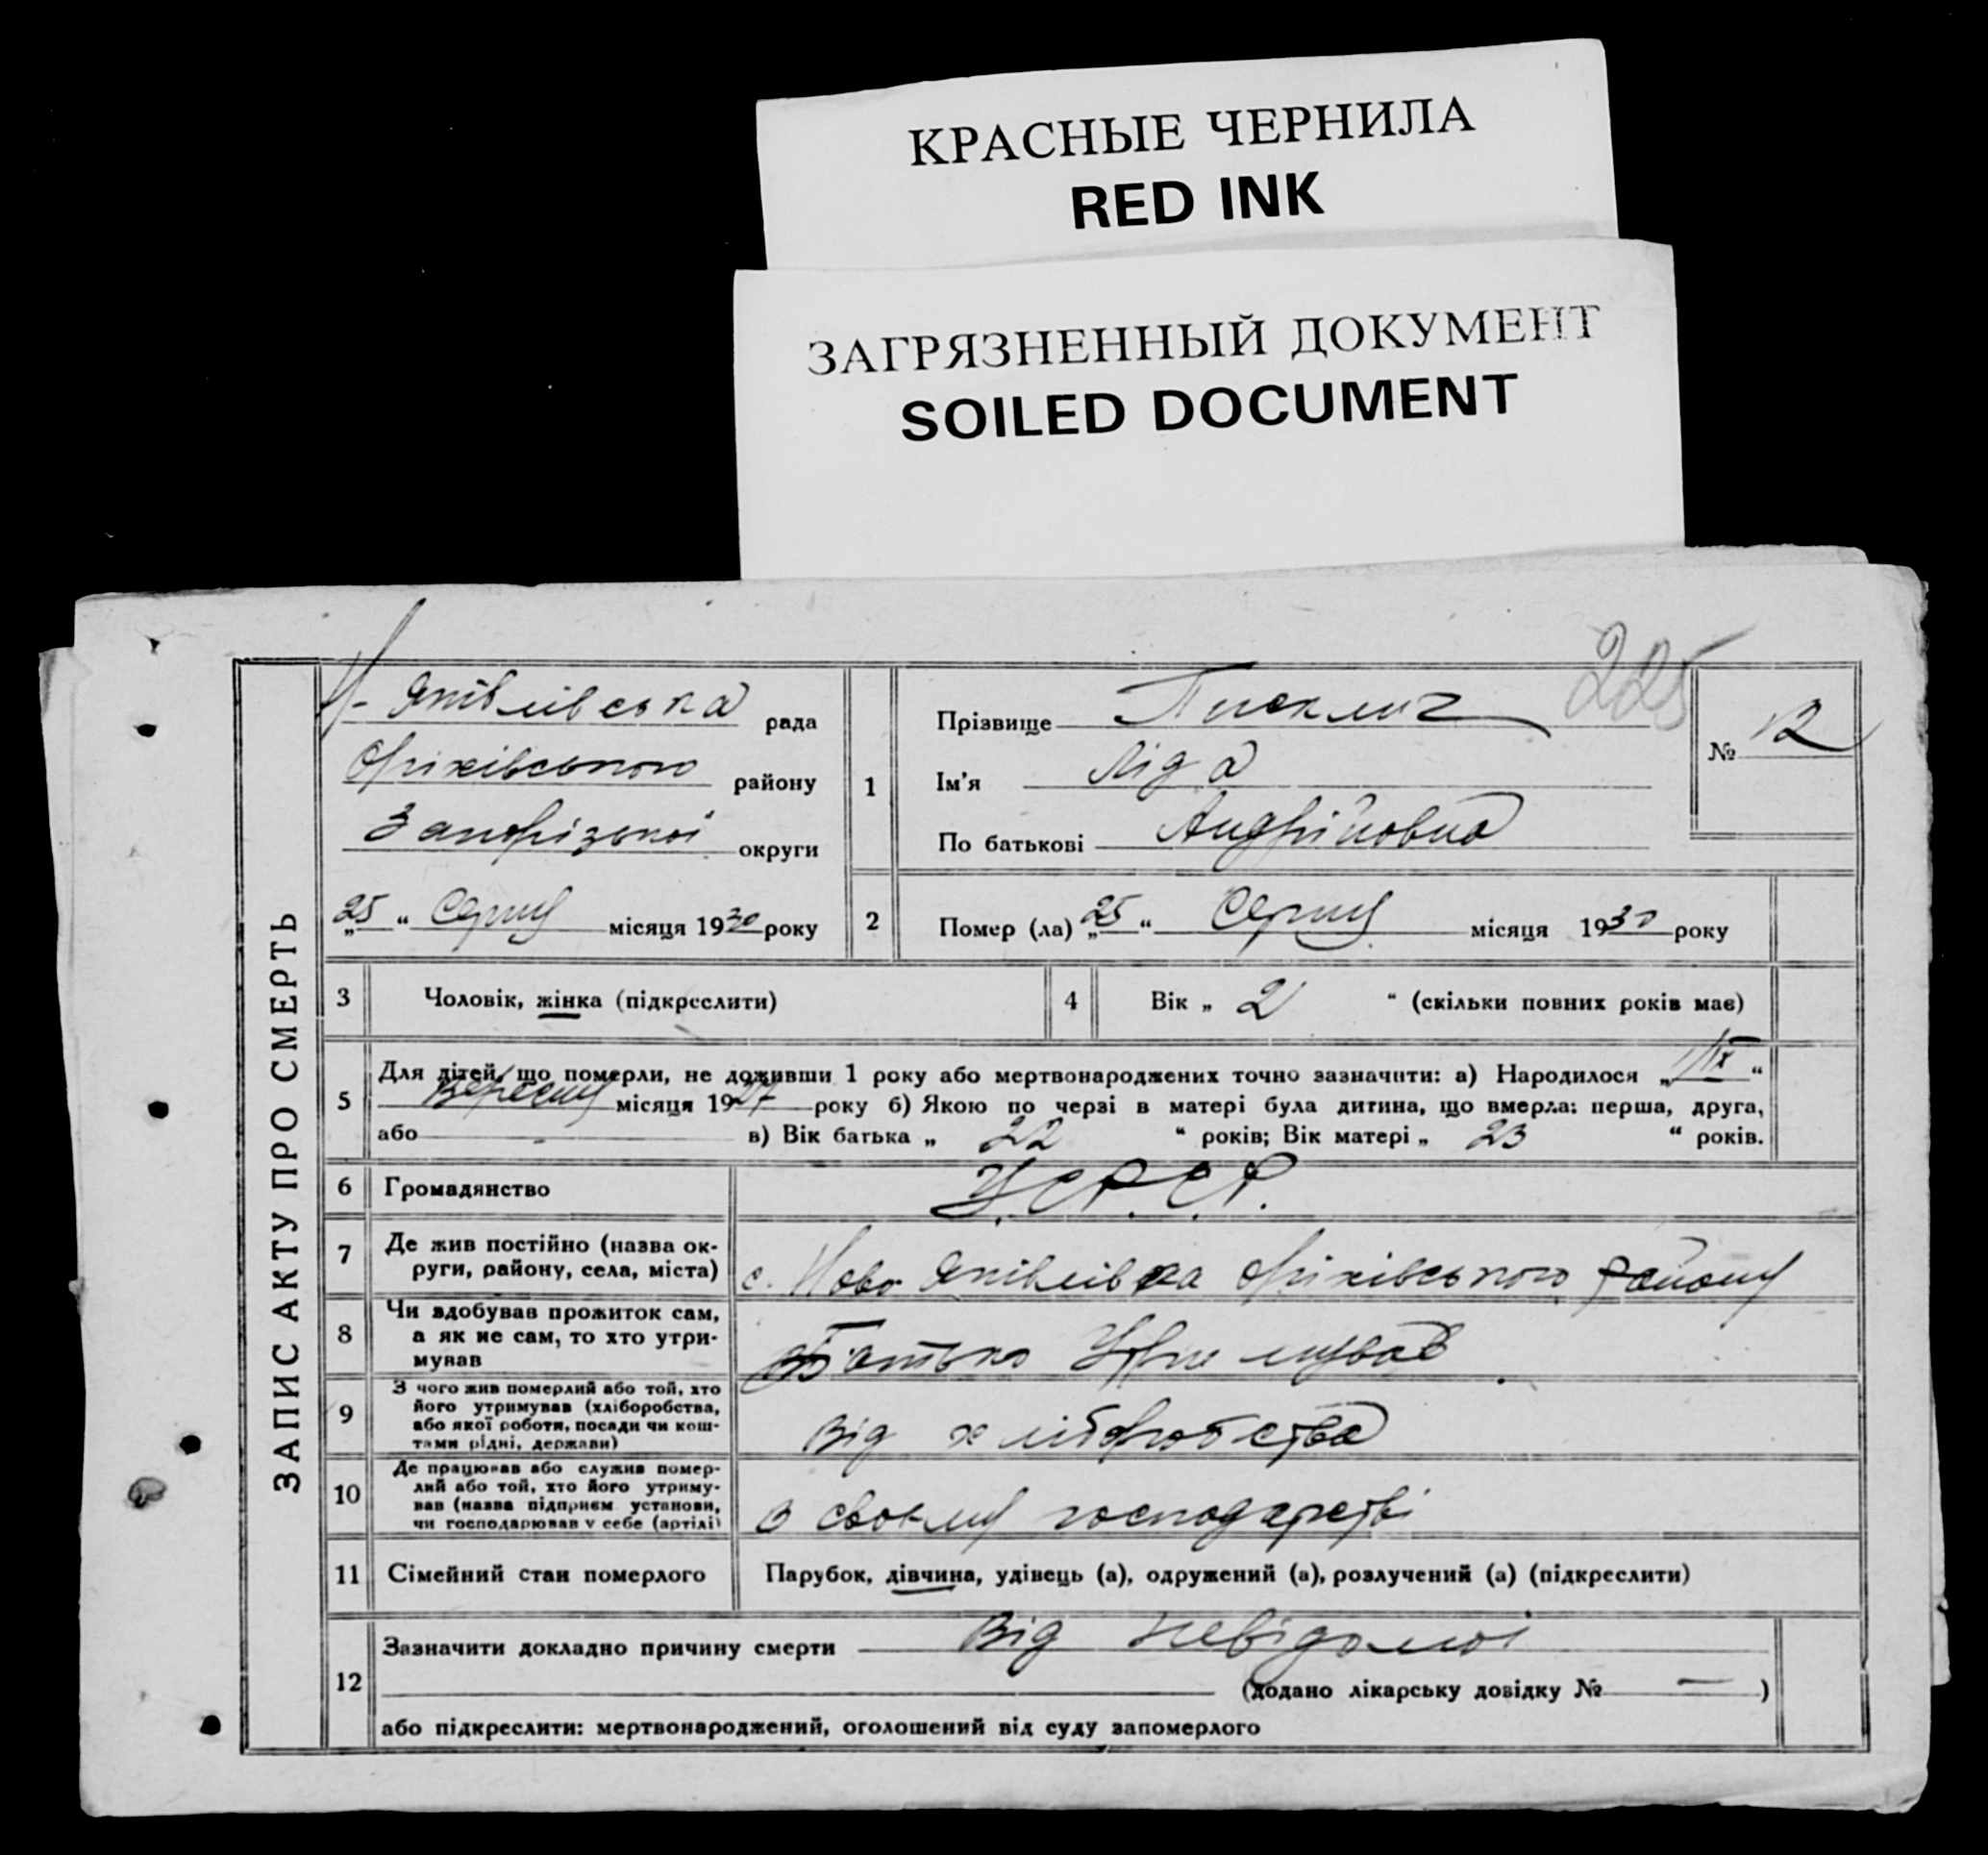 КРАСНЫЕ ЧЕРНИЛА
RED INK
ЗАГРЯЗНЕННЫЙ ДОКУМЕНТ
SOILED DOCUMENT
225
ЗАПИС АКТУ ПРО СМЕРТЬ
Н-Яківлівська рада
Оріхівського району
Запорізької округи
„25“ Серпня місяця 1930 року
1
Прізвище
Ім'я Ліда
По батькові Андрійовна
№ 12
2
Помер (ла) „25“ Серпня місяця 1930 року
3
Чоловік, жінка (підкреслити)
4
Вік „ 2 “ (скільки повних років має)
5
Для дітей, що померли, не доживши 1 року або мертвонароджених точно зазначити: а) Народилося „ “
Вересня місяця 1927 року б) Якою по черзі в матері була дитина, що вмерла: перша, друга,
або - в) Вік батька „ 22 “ років; Вік матері „ 23 “ років.
6
Громадянство
У.С.Р.Р.
7
Де жив постійно (назва ок-
руги, району, села, міста)
с. Ново Яківлівка Оріхівського району
8
Чи здобував прожиток сам,
а як не сам, то хто утри-
мував
Батько Утримував
9
З чого жив померлий або той, хто
його утримував (хліборобства,
або якої роботи, посади чи кош-
тами рідні, держави)
Від хліборобства
10
Де працював або служив помер-
лий або той, хто його утриму-
вав (назва підприєм установи,
чи господарював у себе (артілі)
В своєму господарстві
11
Сімейний стан померлого
Парубок, дівчина, удівець (а), одружений (а), розлучений (а) (підкреслити)
12
Зазначити докладно причину смерти Від невідомої
(додано лікарську довідку № — )
або підкреслити: мертвонароджений, оголошений від суду запомерлого